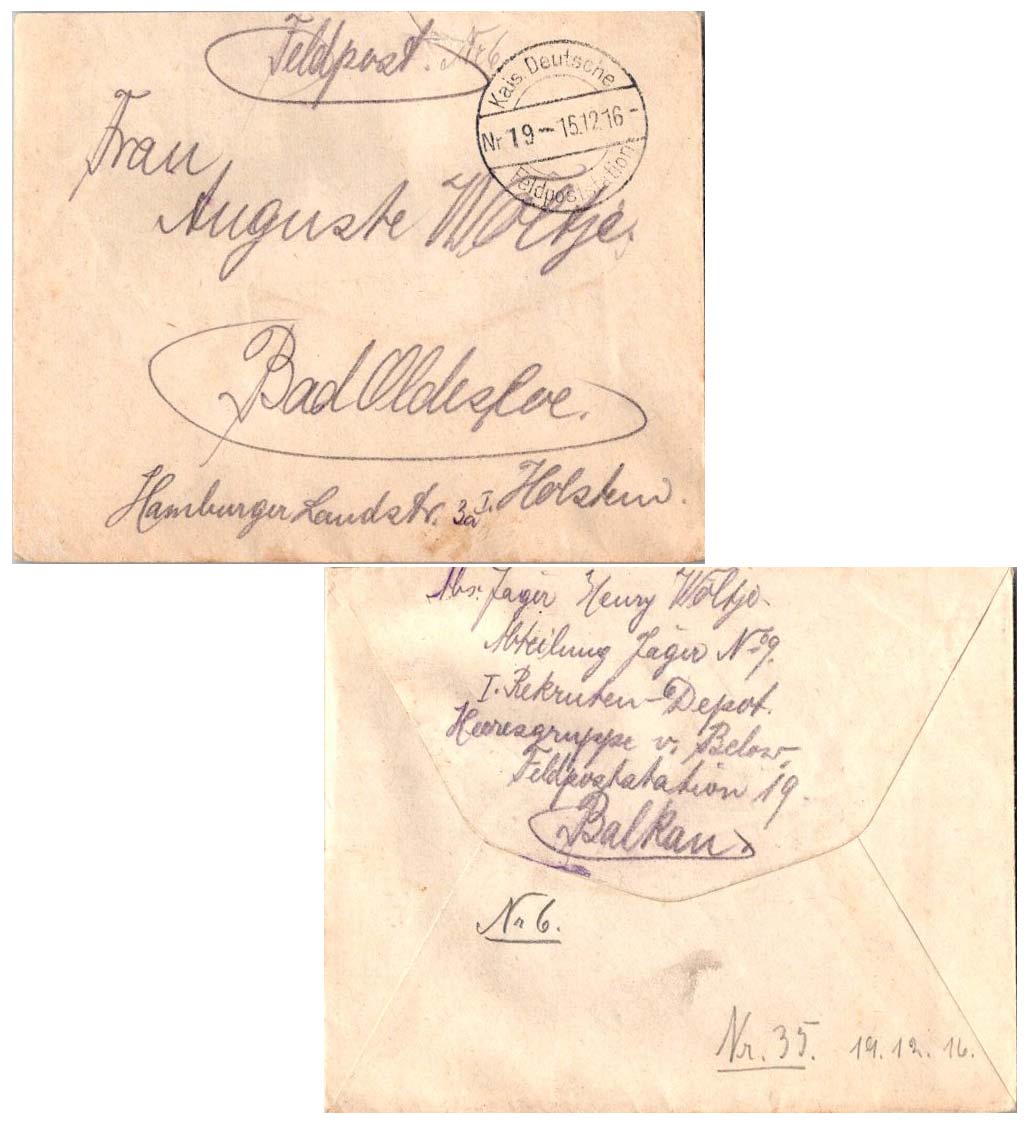 Feldpost. Nr 6
Kais. Deutsche
Nr 19 – 15.12.16 -
Feldpoststation
Frau
Auguste Wöltje,
Bad Oldesloe.
Hamburger Landstr. 3a I. Holstein.
Abs. Jäger Henry Wöltje.
Abteilung Jäger No 9.
I. Rekruten-Depot.
Heeresgruppe v. Below,
Feldpoststation 19.
Balkan
Nr 6.
Nr. 35. 19.12.16.